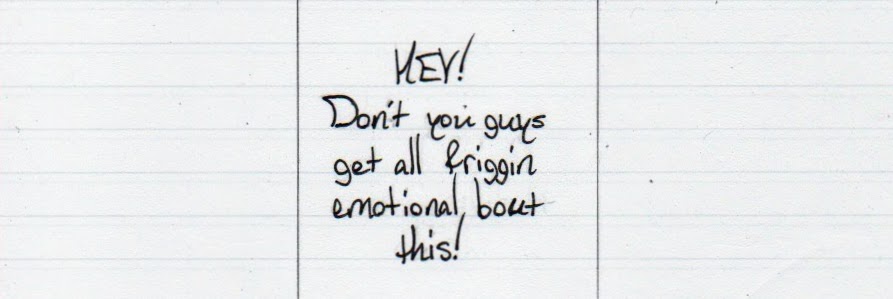 HEY!
Don't you guys
get all friggin
emotional bout
this!